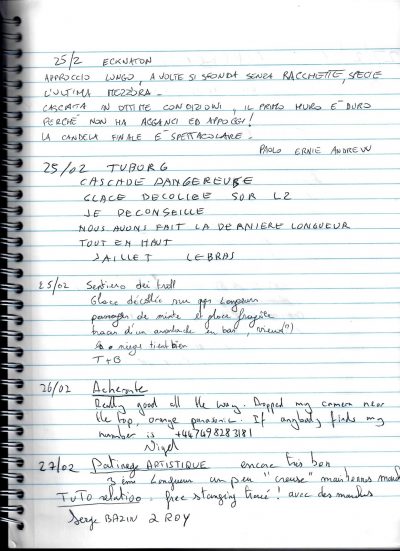 25/2 ECKNATON
APPROCCIO LUNGO, A VOLTE SI SFONDA SENZA RACCHETTE, SPECIE
L'ULTIMA MEZZORA.
CASCATA IN OTTIME CONDIZIONI, IL PRIMO MURO E' DURO
PERCHÉ NON HA AGGANCI ED APPOGGI!
LA CANDELA FINALE E' SPETTACOLARE.
PAOLO ERNIE ANDREW
25/02 TUBORG
CASCADE DANGEREUSE
GLACE DECOLLEE SUR L2
JE DECONSEILLE
NOUS AVONS FAIT LA DERNIERE LONGUEUR
TOUT EN HAUT
JAILLET LEBRAS
25/02 Sentiero dei troll
Glace décollée sur qqs longueurs
passages de mixte et glace fragile
traces d'un avalanche en bas, vieux(?)
neige tient bien
T+B
26/02 Acheronte
Really good all the way. Dropped my camera near
the top, orange panasonic. If anybody finds my
number is +447498283181
Nigel
27/02 Patinage ARTISTIQUE encore très bon
3 ème longueur un peu "creuse" maintenant
TUTO relatico: free standing tracé! avec des
Serge BAZIN 2 ROY